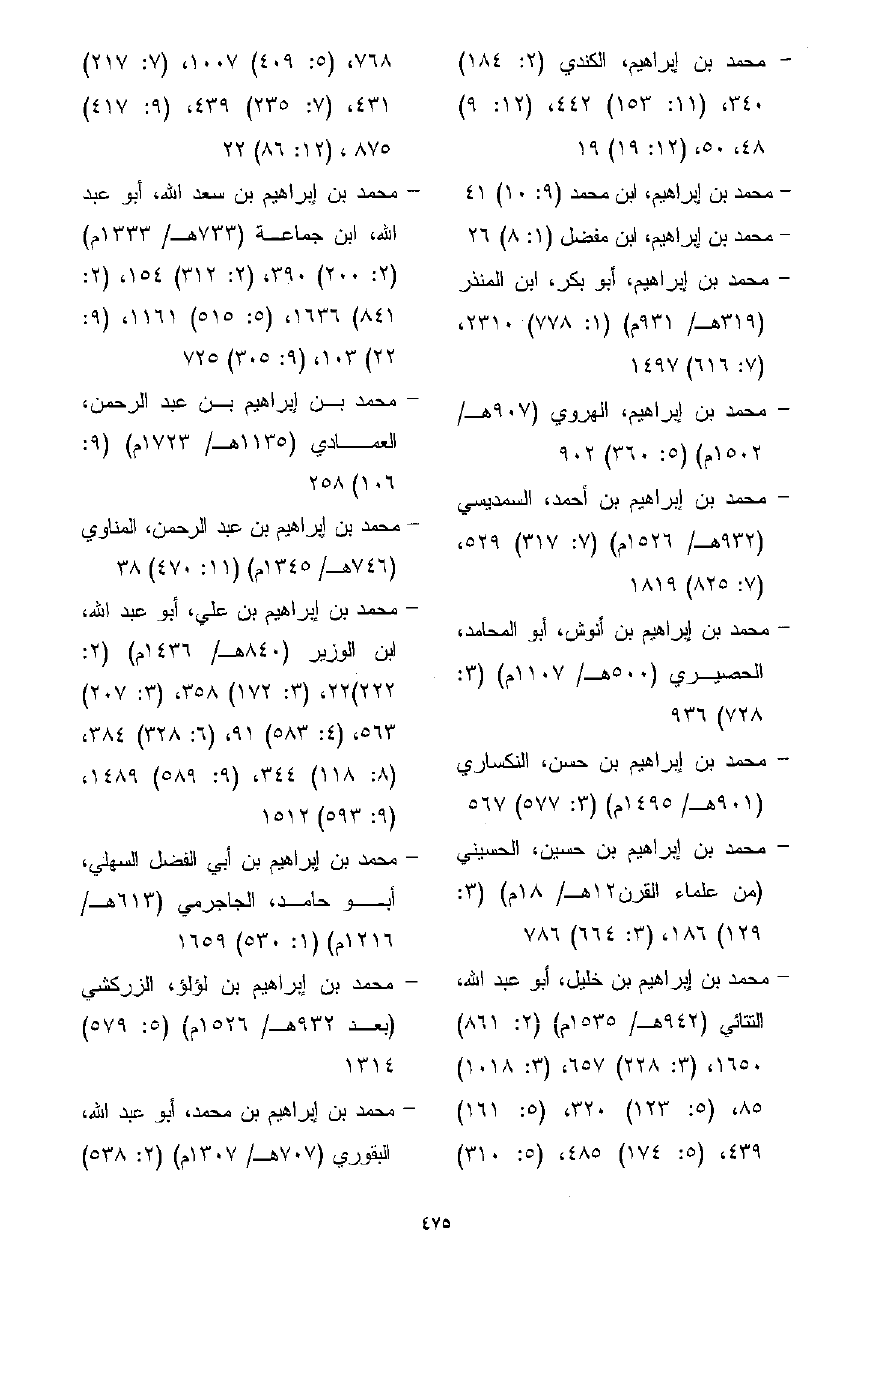 - محمد بن إبراهيم، الكندي (٢: ١٨٤)
٣٤٠، (١١: ١٥٣) ٤٤٢، (١٢: ٩)
٤٨، ٥٠، (١٢: ١٩) ١٩
- محمد بن إبراهيم، ابن محمد (٩: ١٠) ٤١
- محمد بن إبراهيم، ابن مفضل (١: ٨) ٢٦
- محمد بن إبراهيم، أبو بكر، ابن المنذر
(٣١٩هـ/ ٩٣١م) (١: ٧٧٨) ٢٣١٠،
(٧: ٦١٦) ١٤٩٧
- محمد بن إبراهيم، الهروي (٩٠٧هـ/
١٥٠٢م) (٥: ٣٦٠) ٩٠٢
- محمد بن إبراهيم بن أحمد، السمديسي
(٩٣٢هـ/ ١٥٢٦م) (٧: ٣١٧) ٥٢٩،
(٧: ٨٢٥) ١٨١٩
- محمد بن إبراهيم بن أنوش، أبو المحامد،
الحصيري (٥٠٠هـ/ ١١٠٧م) (٣:
٧٢٨) ٩٣٦
- محمد بن إبراهيم بن حسن، النكساري
(٩٠١هـ/ ١٤٩٥م) (٣: ٥٧٧) ٥٦٧
- محمد بن إبراهيم بن حسين، الحسيني
(من علماء القرن١٢هـ/ ١٨م) (٣:
١٢٩) ١٨٦، (٣: ٦٦٤) ٧٨٦
- محمد بن إبراهيم بن خليل، أبو عبد الله،
التتائي (٩٤٢هـ/ ١٥٣٥م) (٢: ٨٦١)
١٦٥٠، (٣: ٢٢٨) ٦٥٧، (٣: ١٠١٨)
٨٥، (٥: ١٢٣) ٣٢٠، (٥: ١٦١)
٤٣٩، (٥: ١٧٤) ٤٨٥، (٥: ٣١٠)
٧٦٨، (٥: ٤٠٩) ١٠٠٧، (٧: ٢١٧)
٤٣١، (٧: ٢٣٥) ٤٣٩، (٩: ٤١٧)
٨٧٥ ، (١٢: ٨٦) ٢٢
- محمد بن إبراهيم بن سعد الله، أبو عبد
الله، ابن جماعة (٧٣٣هـ/ ١٣٣٣م)
(٢: ٢٠٠) ٣٩٠، (٢: ٣١٢) ١٥٤، (٢:
٨٤١) ١٦٣٦، (٥: ٥١٥) ١١٦١، (٩:
٢٢) ١٠٣، (٩: ٣٠٥) ٧٢٥
- محمد بن إبراهيم بن عبد الرحمن،
العمادي (١١٣٥هـ/ ١٧٢٣م) (٩:
١٠٦) ٢٥٨
- محمد بن إبراهيم بن عبد الرحمن، المناوي
(٧٤٦هـ/ ١٣٤٥م) (١١: ٤٧٠) ٣٨
- محمد بن إبراهيم بن علي، أبو عبد الله،
ابن الوزير (٨٤٠هـ/ ١٤٣٦م) (٢:
٢٢٢)٢٢، (٣: ١٧٢) ٣٥٨، (٣: ٢٠٧)
٥٦٣، (٤: ٥٨٣) ٩١، (٦: ٣٢٨) ٣٨٤،
(٨: ١١٨) ٣٤٤، (٩: ٥٨٩) ١٤٨٩،
(٩: ٥٩٣) ١٥١٢
- محمد بن إبراهيم بن أبي الفضل السهلي،
أبو حامد، الجاجرمي (٦١٣هـ/
١٢١٦م) (١: ٥٣٠) ١٦٥٩
- محمد بن إبراهيم بن لؤلؤ، الزركشي
(بعد ٩٣٢هـ/ ١٥٢٦م) (٥: ٥٧٩)
١٣١٤
- محمد بن إبراهيم بن محمد، أبو عبد الله،
البقوري (٧٠٧هـ/ ١٣٠٧م) (٢: ٥٣٨)
٤٧٥